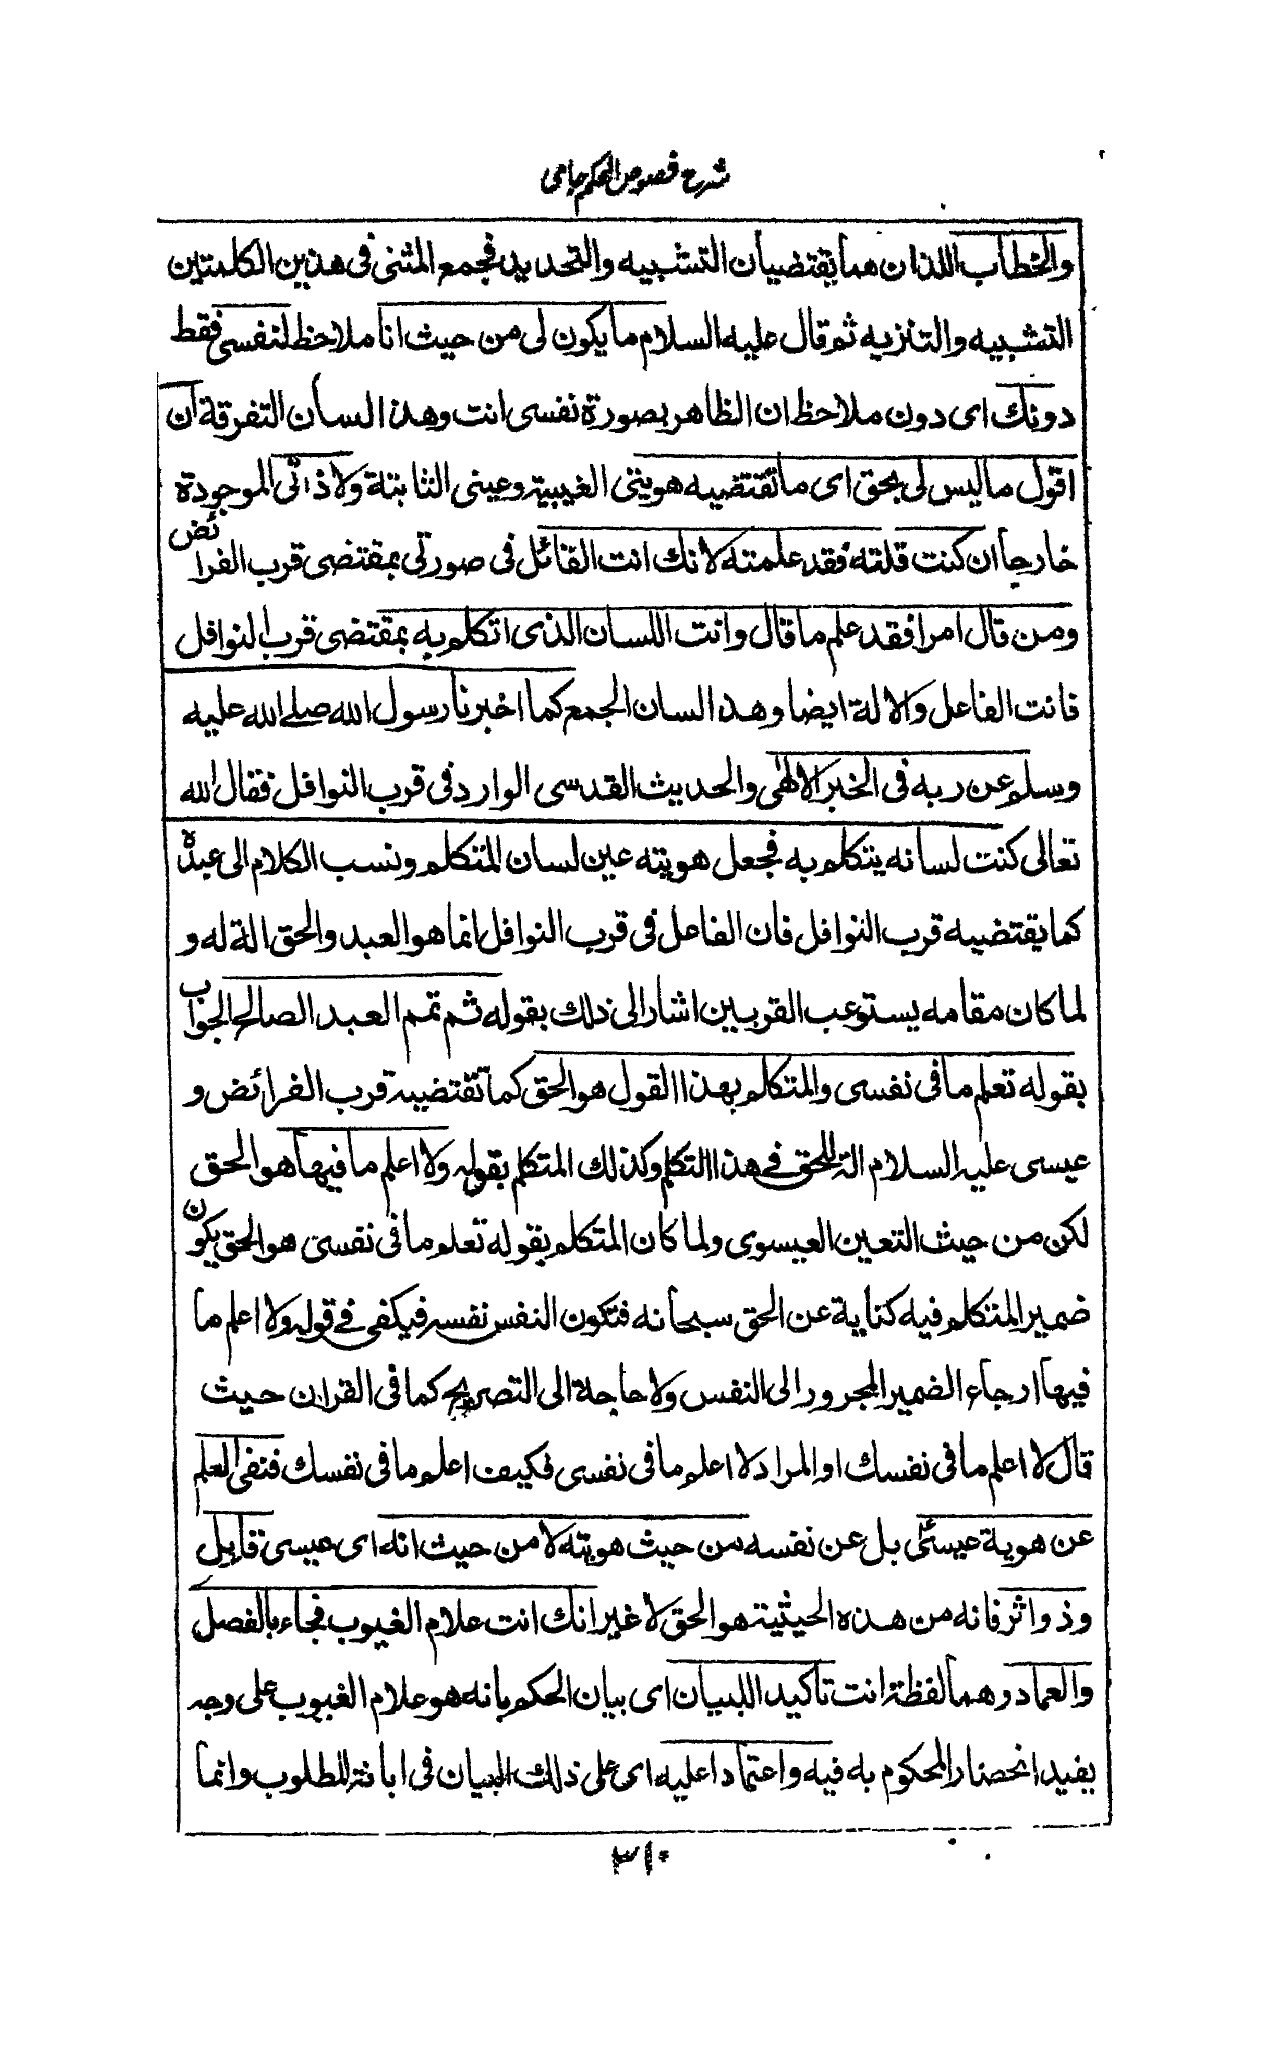 شرح فصوص الحكم جامى
والخطاب اللذان هما يقتضيان التشبيه والتحديد فجمع المثنى فى هذين الكلمتين
التشبيه والتنزيه ثم قال عليه السلام ما يكون لى من حيث انا ملاحظ لنفسى فقط
دونك اى دون ملاحظ ان الظاهر بصورة نفسى انت وهذا لسان التفرقة ان
اقول ما ليس لى بحق اى ما تقتضيه هويتى الغيبية وعينى الثابتة ولا ذاتى الموجودة
خارجا ان كنت قلته فقد علمته لانك انت القائل فى صورتى بمقتضى قرب الفرائض
ومن قال امرا فقد علم ما قال وانت اللسان الذى اتكلم به بمقتضى قرب النوافل
فانت الفاعل والالة ايضا وهذا لسان الجمع كما اخبرنا رسول الله صلے الله عليه
وسلم عن ربه فى الخبر الالهٰى والحديث القدسى الوارد فى قرب النوافل فقال الله
تعالى كنت لسانه يتكلم به فجعل هويته عين لسان المتكلم ونسب الكلام الى عبده
كما يقتضيه قرب النوافل فان الفاعل فى قرب النوافل انما هو العبد والحق الة له و
لما كان مقامه يستوعب القربين اشار الى ذلك بقوله ثم تمم العبد الصالح الجواب
بقوله تعلم ما فى نفسى والمتكلم بهذا القول هو الحق كما تقتضيه قرب الفرائض و
عيسى عليه السلام الة للحق فے هذا التكلم وكذلك المتكلم بقوله ولا اعلم ما فيها هو الحق
لكن من حيث التعين العيسوى ولما كان المتكلم بقوله تعلم ما فى نفسى هو الحق يكون
ضمير المتكلم فيه كناية عن الحق سبحانه فتكون النفس نفسه فيكفى فے قوله ولا اعلم ما
فيها ارجاء الضمير المجرور الى النفس ولا حاجة الى التصريح كما فى القران حيث
قال لا اعلم ما فى نفسك او المراد لا اعلم ما فى نفسى فكيف اعلم ما فى نفسك فنفى العلم
عن هوية عيسىٰ بل عن نفسه من حيث هويته لا من حيث انه اى عيسى قابل
وذو اثر فانه من هذه الحيثية هو الحق لا غير انك انت علام الغيوب فجاء بالفصل
والعماد وهما لفظة انت تاكيدا للبيان اى بيان الحكم بانه هو علام الغيوب على وجه
يفيد انحصار المحكوم به فيه واعتمادا عليه اى على ذلك البيان فى ابانة المطلوب وانما
٣١٠